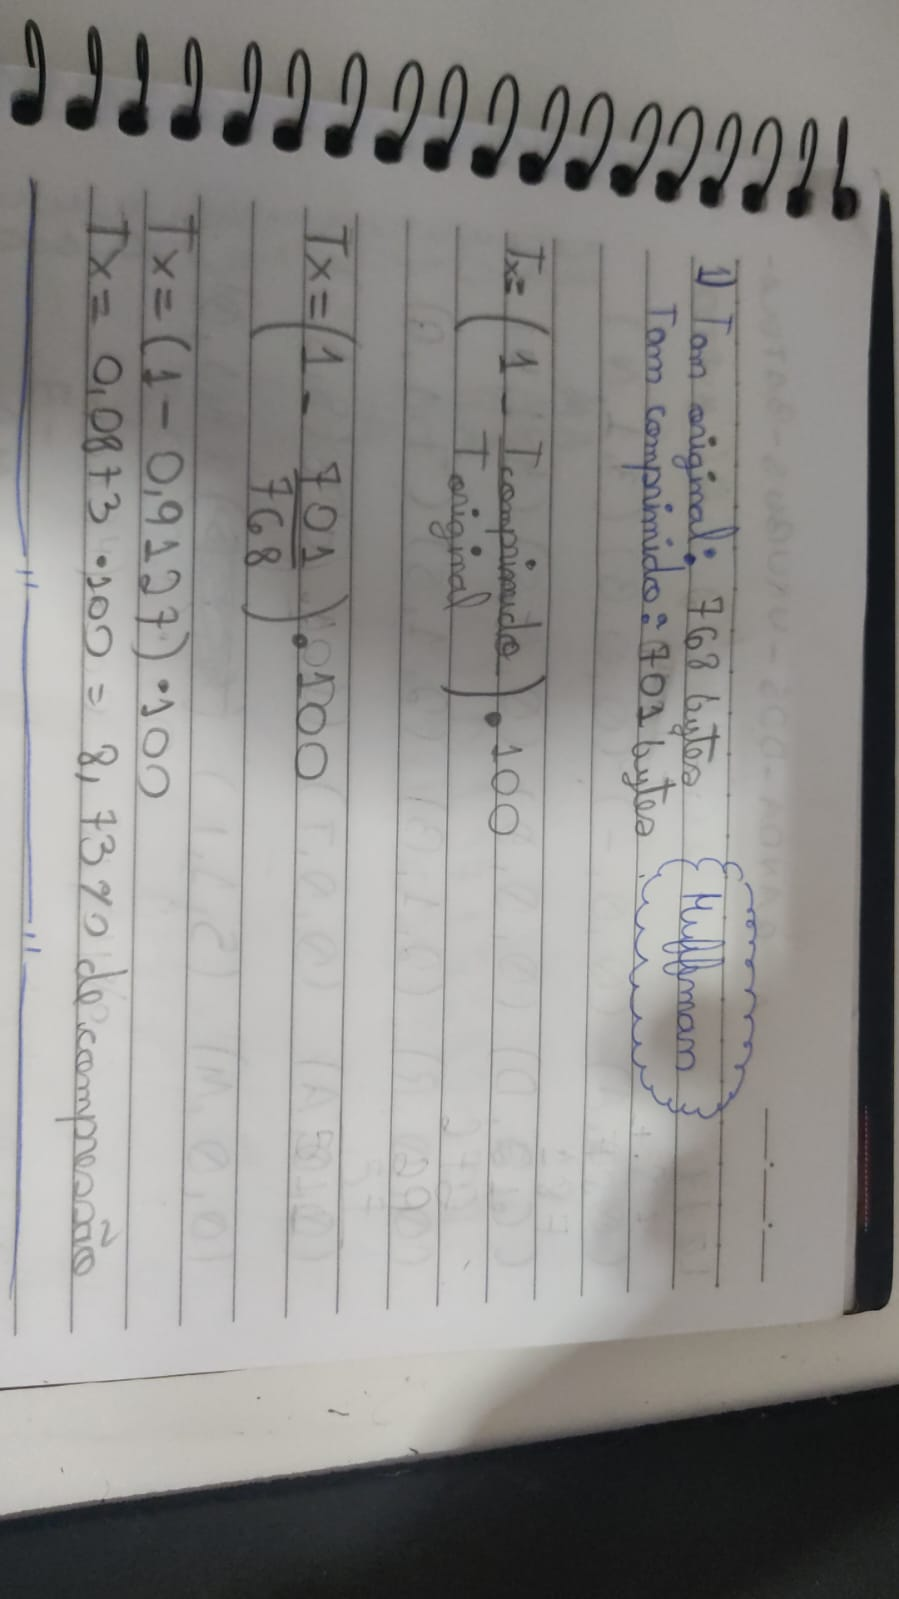 1) Tam original: 768 bytes
Tam comprimido: 701 bytes
Huffman
Tx= (1 - Tcomprimido / Toriginal) • 100
Tx= (1 - 701 / 768) • 100
Tx= (1 - 0,9127) • 100
Tx= 0,0873 • 100 = 8,73% de compressão